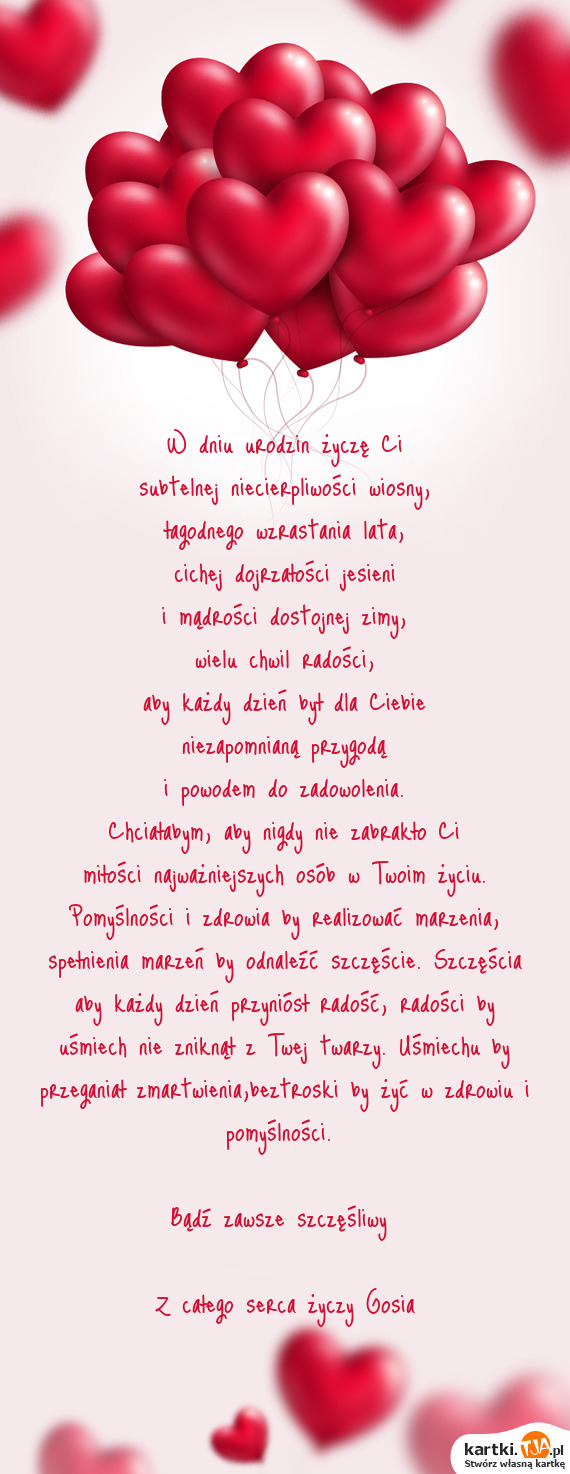 W dniu urodzin życzę Ci
subtelnej niecierpliwości wiosny,
łagodnego wzrastania lata,
cichej dojrzałości jesieni
i mądrości dostojnej zimy,
wielu chwil radości,
aby każdy dzień był dla Ciebie
niezapomnianą przygodą
i powodem do zadowolenia.
Chciałabym, aby nigdy nie zabrakło Ci
miłości najważniejszych osób w Twoim życiu.
Pomyślności i zdrowia by realizować marzenia,
spełnienia marzeń by odnaleźć szczęście. Szczęścia
aby każdy dzień przyniósł radość, radości by
uśmiech nie zniknął z Twej twarzy. Uśmiechu by
przeganiał zmartwienia,beztroski by żyć w zdrowiu i
pomyślności.
Bądź zawsze szczęśliwy
Z całego serca życzy Gosia
kartki.TJA.pl
Stwórz własną kartkę